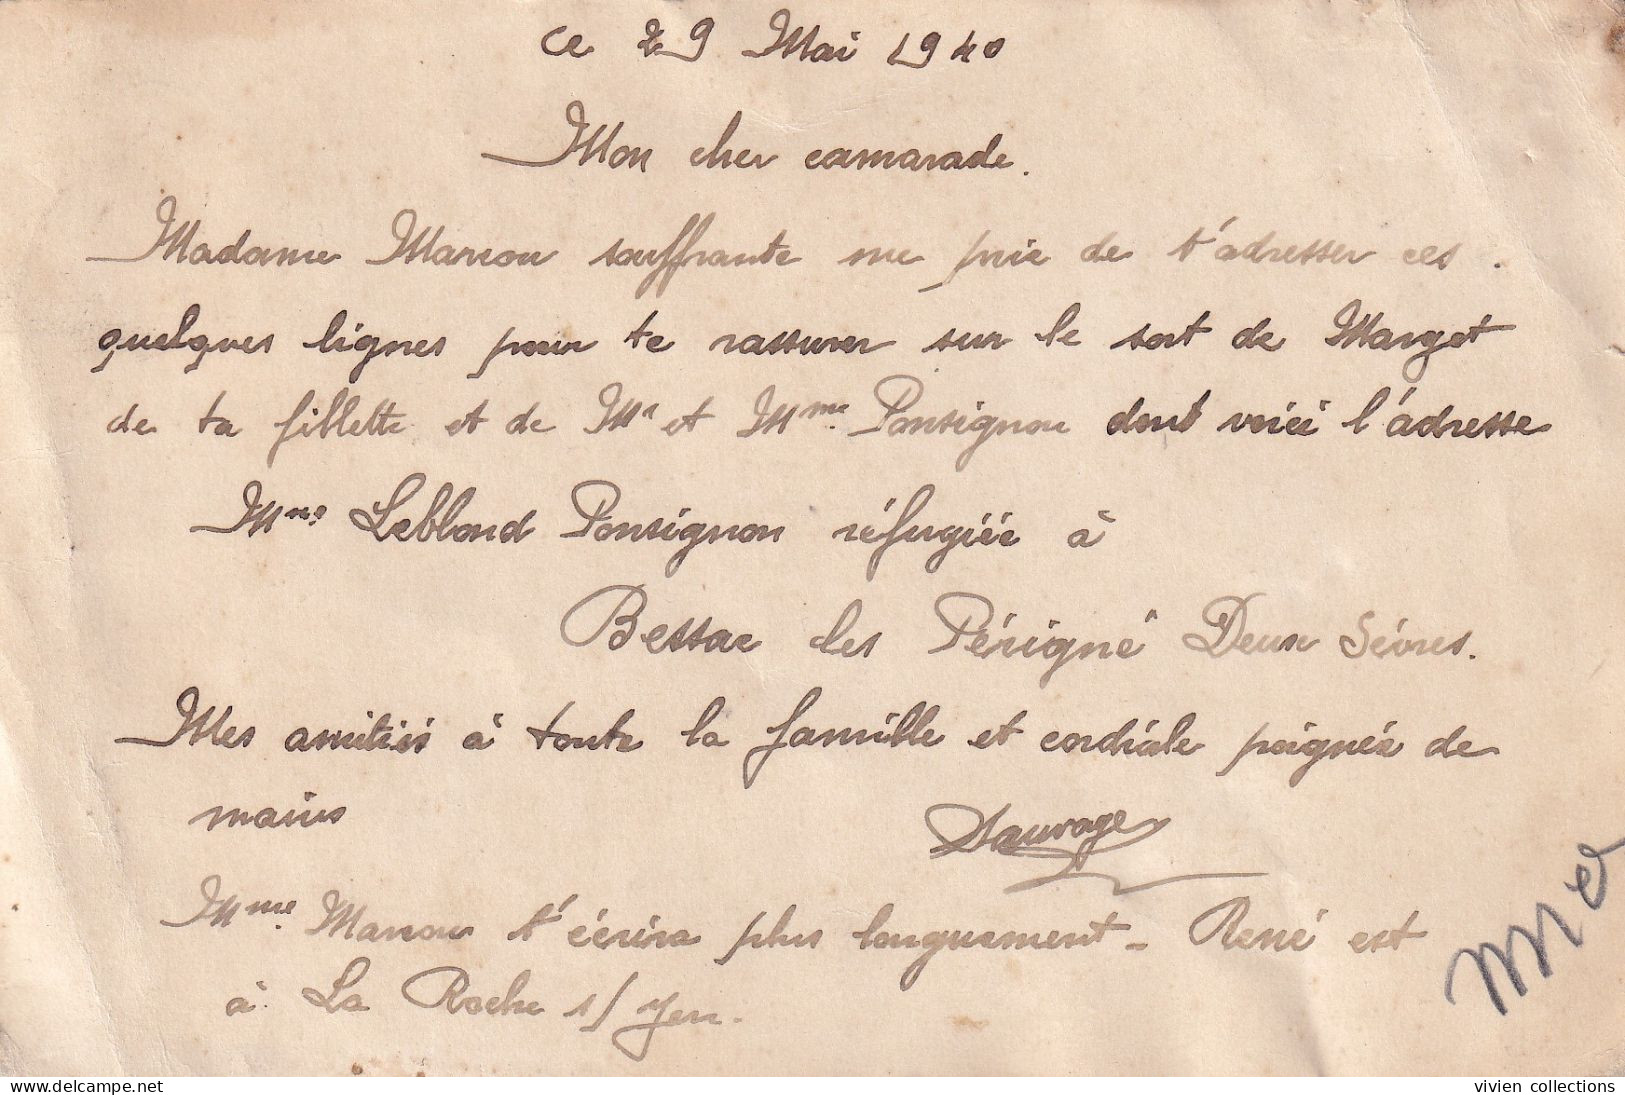 ce 29 Mai 1940
Mon cher camarade.
Madame Marcou souffrante me prie de t'adresser ces
quelques lignes pour te rassurer sur le sort de Margot
de ta fillette et de Mr et Mme Ponsignon dont voici l'adresse
Mme Leblond Ponsignon réfugiée à
Bessac les Périgné Deux Sèvres.
Mes amitiés à toute la famille et cordiale poignée de
mains
Sauvage
Mme Marcou t'écrira plus longuement - René est
à La Roche s/ Yon.
delcampe.net
vivien collections